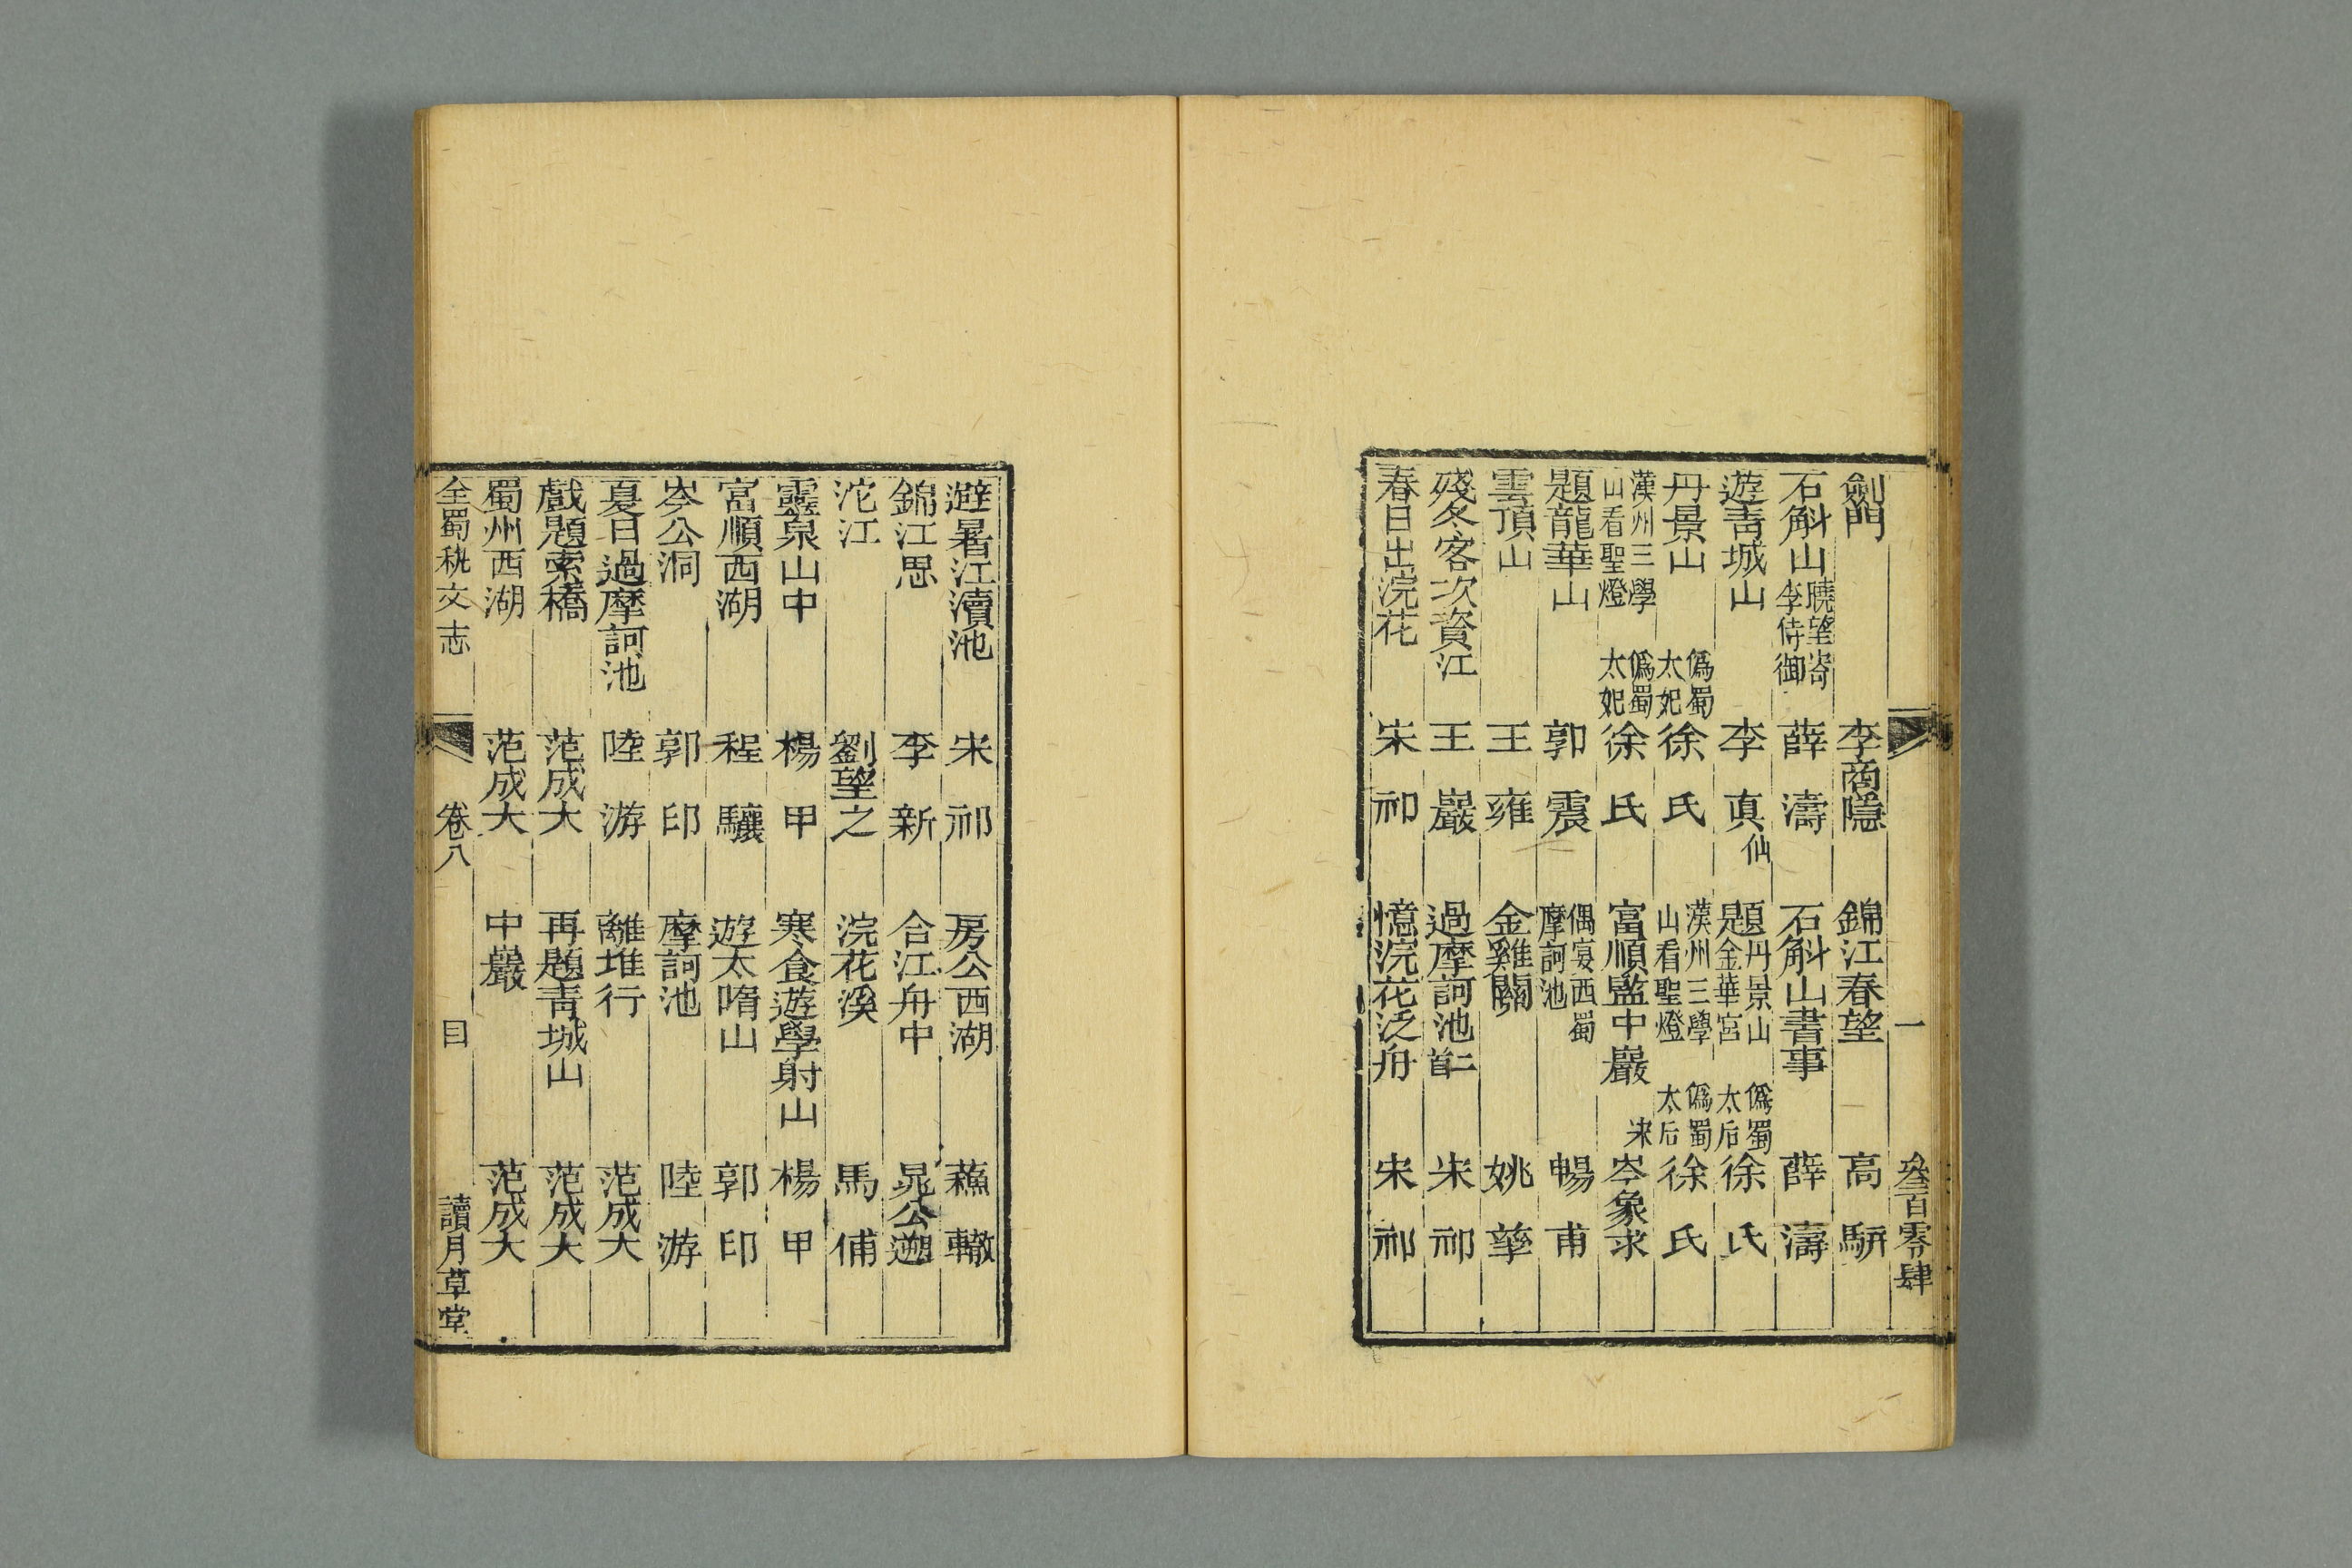 劍門 李商隱 錦江春望 高駢
石斛山曉望寄李侍御 薛濤 石斛山書事 薛濤
遊青城山 李真仙 題丹景山金華宮 僞蜀太后徐氏
丹景山 僞蜀太妃徐氏 漢州三學山看聖燈 僞蜀太后徐氏
漢州三學山看聖燈 僞蜀太妃徐氏 富順監中巖 宋岑象求
題龍華山 郭震 偶宴西蜀摩訶池 暢甫
雲頂山 王雍 金雞關 姚孳
殘冬客次資江 王巖 過摩訶池二首 宋祁
春日出浣花 宋祁 憶浣花泛舟 宋祁
一 叄百零肆
避暑江瀆池 宋祁 房公西湖 蘇轍
錦江思 李新 合江舟中 晁公遡
沱江 劉望之 浣花溪 馬俌
靈泉山中 楊甲 寒食遊學射山 楊甲
富順西湖 程驤 遊太隋山 郭印
岑公洞 郭印 摩訶池 陸游
夏日過摩訶池 陸游 離堆行 范成大
戲題索橋 范成大 再題青城山 范成大
蜀州西湖 范成大 中巖 范成大
全蜀秇文志 卷八 目 讀月草堂